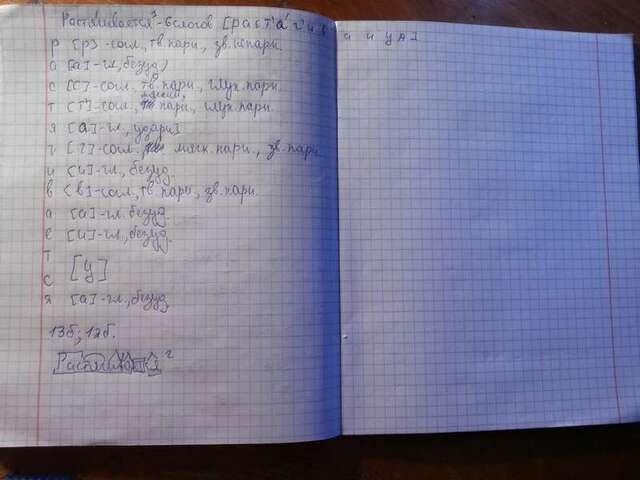 Растягивается³ - 6 слогов [раст'а́г'ив а и ц а]
р [р] - согл., тв. парн., зв. непарн.
а [а] - гл., безуд.
с [с] - согл., тв. парн., глух. парн.
т [т'] - согл., мягк. парн., глух. парн.
я [а] - гл., ударн.
г [г'] - согл., мягк. парн., зв. парн.
и [и] - гл., безуд.
в [в] - согл., тв. парн., зв. парн.
а [а] - гл. безуд.
е [и] - гл., безуд.
т
с [ц]
я [а] - гл., безуд.
13б; 12б.
²